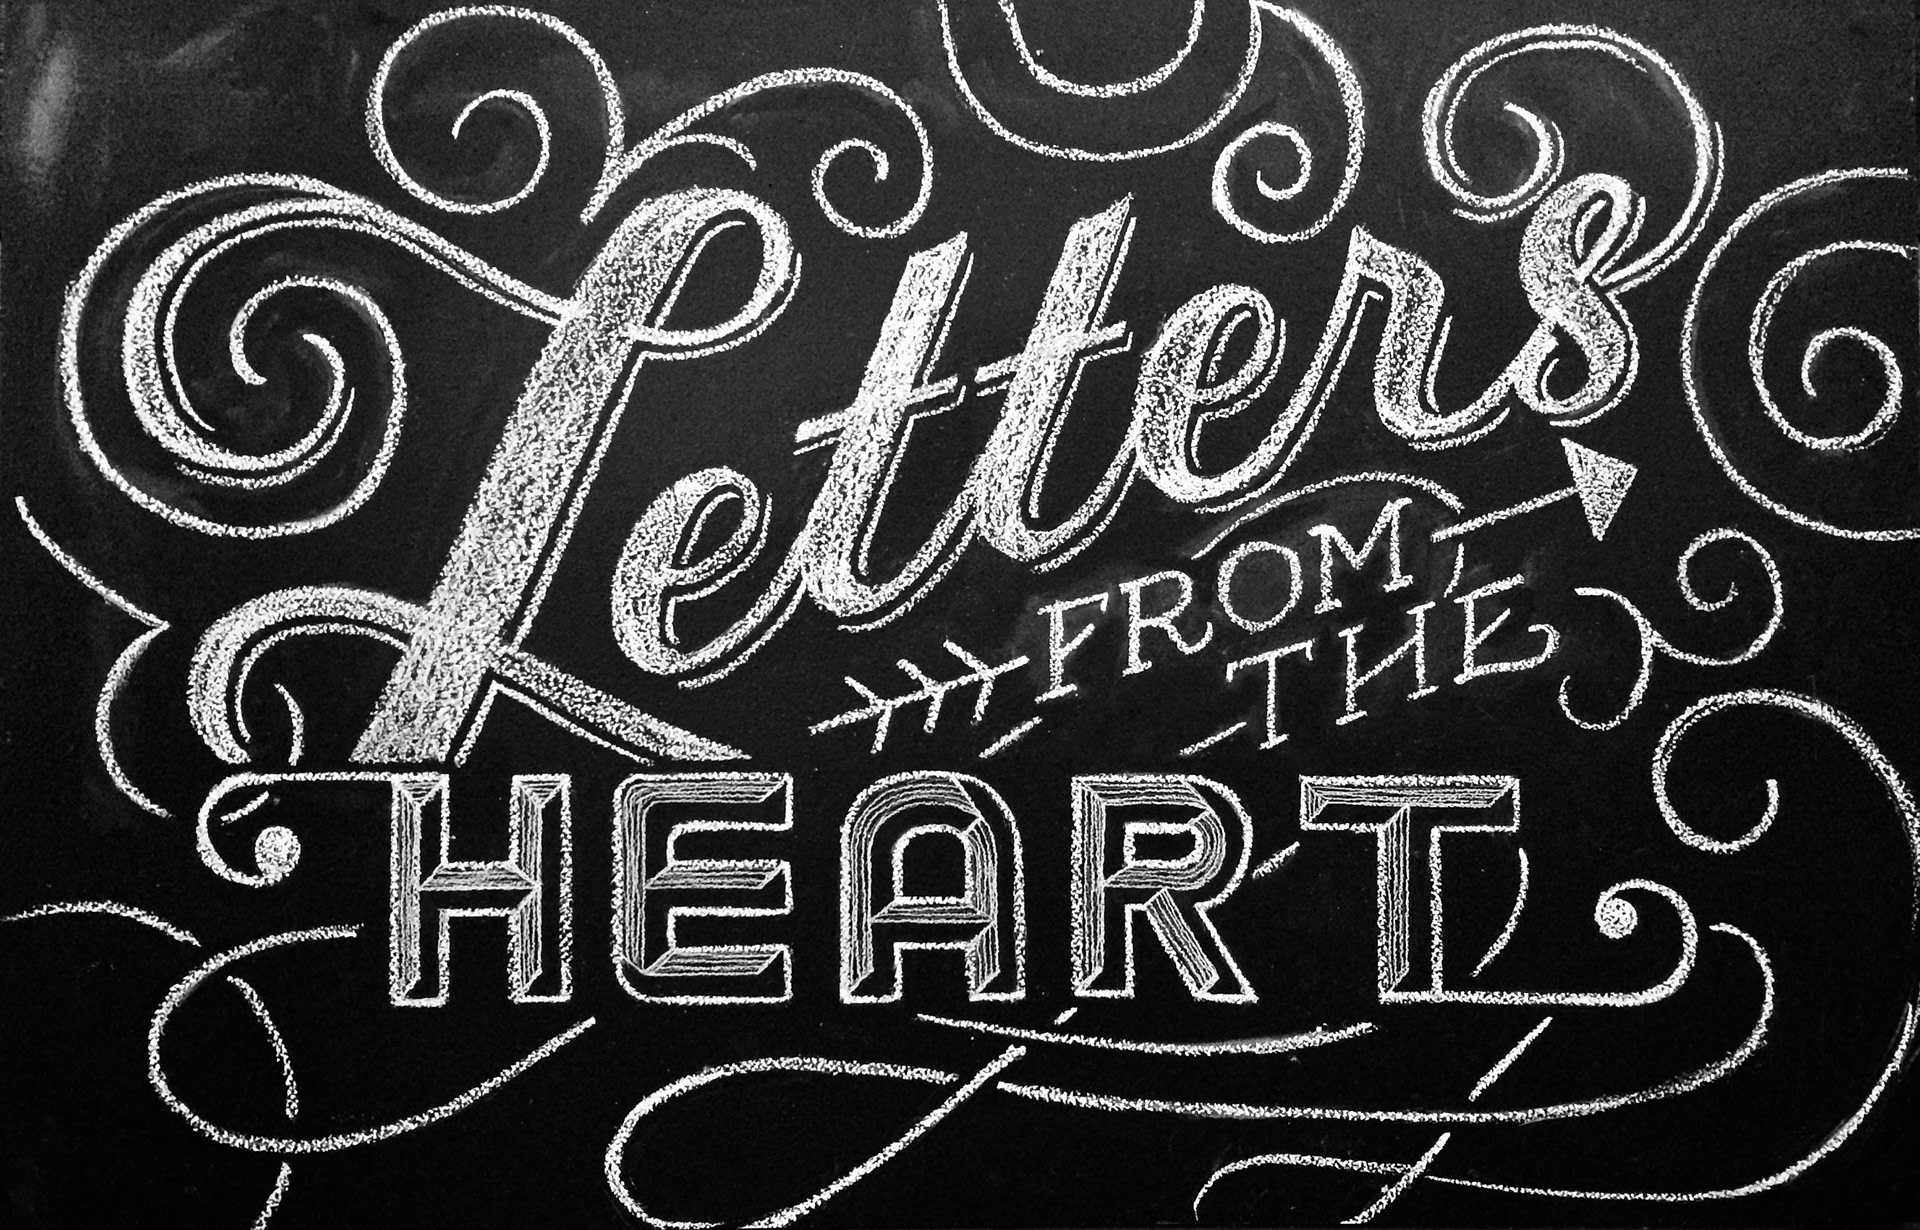 Letters
FROM
THE
HEART